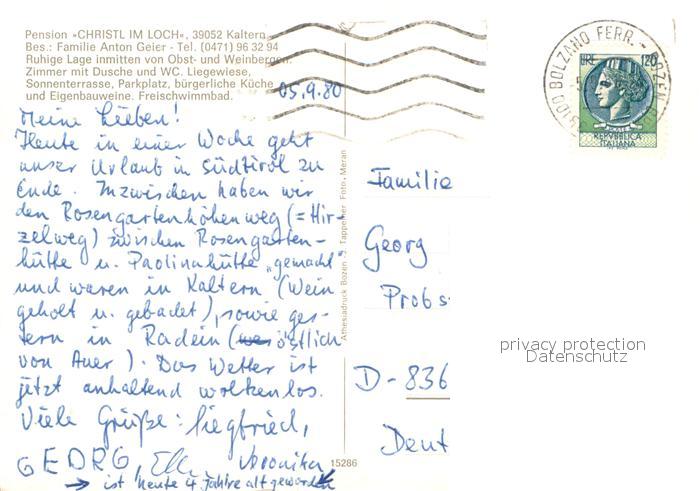 Pension »CHRISTL IM LOCH«, 39052 Kaltern
Bes.: Familie Anton Geier - Tel. (0471) 96 32 94
Ruhige Lage inmitten von Obst- und Weinbergen.
Zimmer mit Dusche und WC. Liegewiese,
Sonnenterrasse, Parkplatz, bürgerliche Küche
und Eigenbauweine. Freischwimmbad.
05.9.80
Meine Lieben!
Heute in einer Woche geht
unser Urlaub in Südtirol zu
Ende. Inzwischen haben wir
den Rosengartenhöhenweg (= Hir-
zelweg) zwischen Rosengarten-
hütte u. Paolinahütte „gemacht“
und waren in Kaltern (Wein
geholt u. gebadet), sowie ges-
tern in Radein (östlich
von Auer). Das Wetter ist
jetzt anhaltend wolkenlos.
Viele Grüße: Siegfried,
GEORG, Veronika
→ ist heute 4 Jahre alt geworden
Athesiadruck Bozen - J. Tappeiner Foto, Meran
15286
39100 BOLZANO FERR. - BOZEN
LIRE 120
REPVBBLICA
ITALIANA
Familie
Georg
Probs
D - 836
Deut
privacy protection
Datenschutz